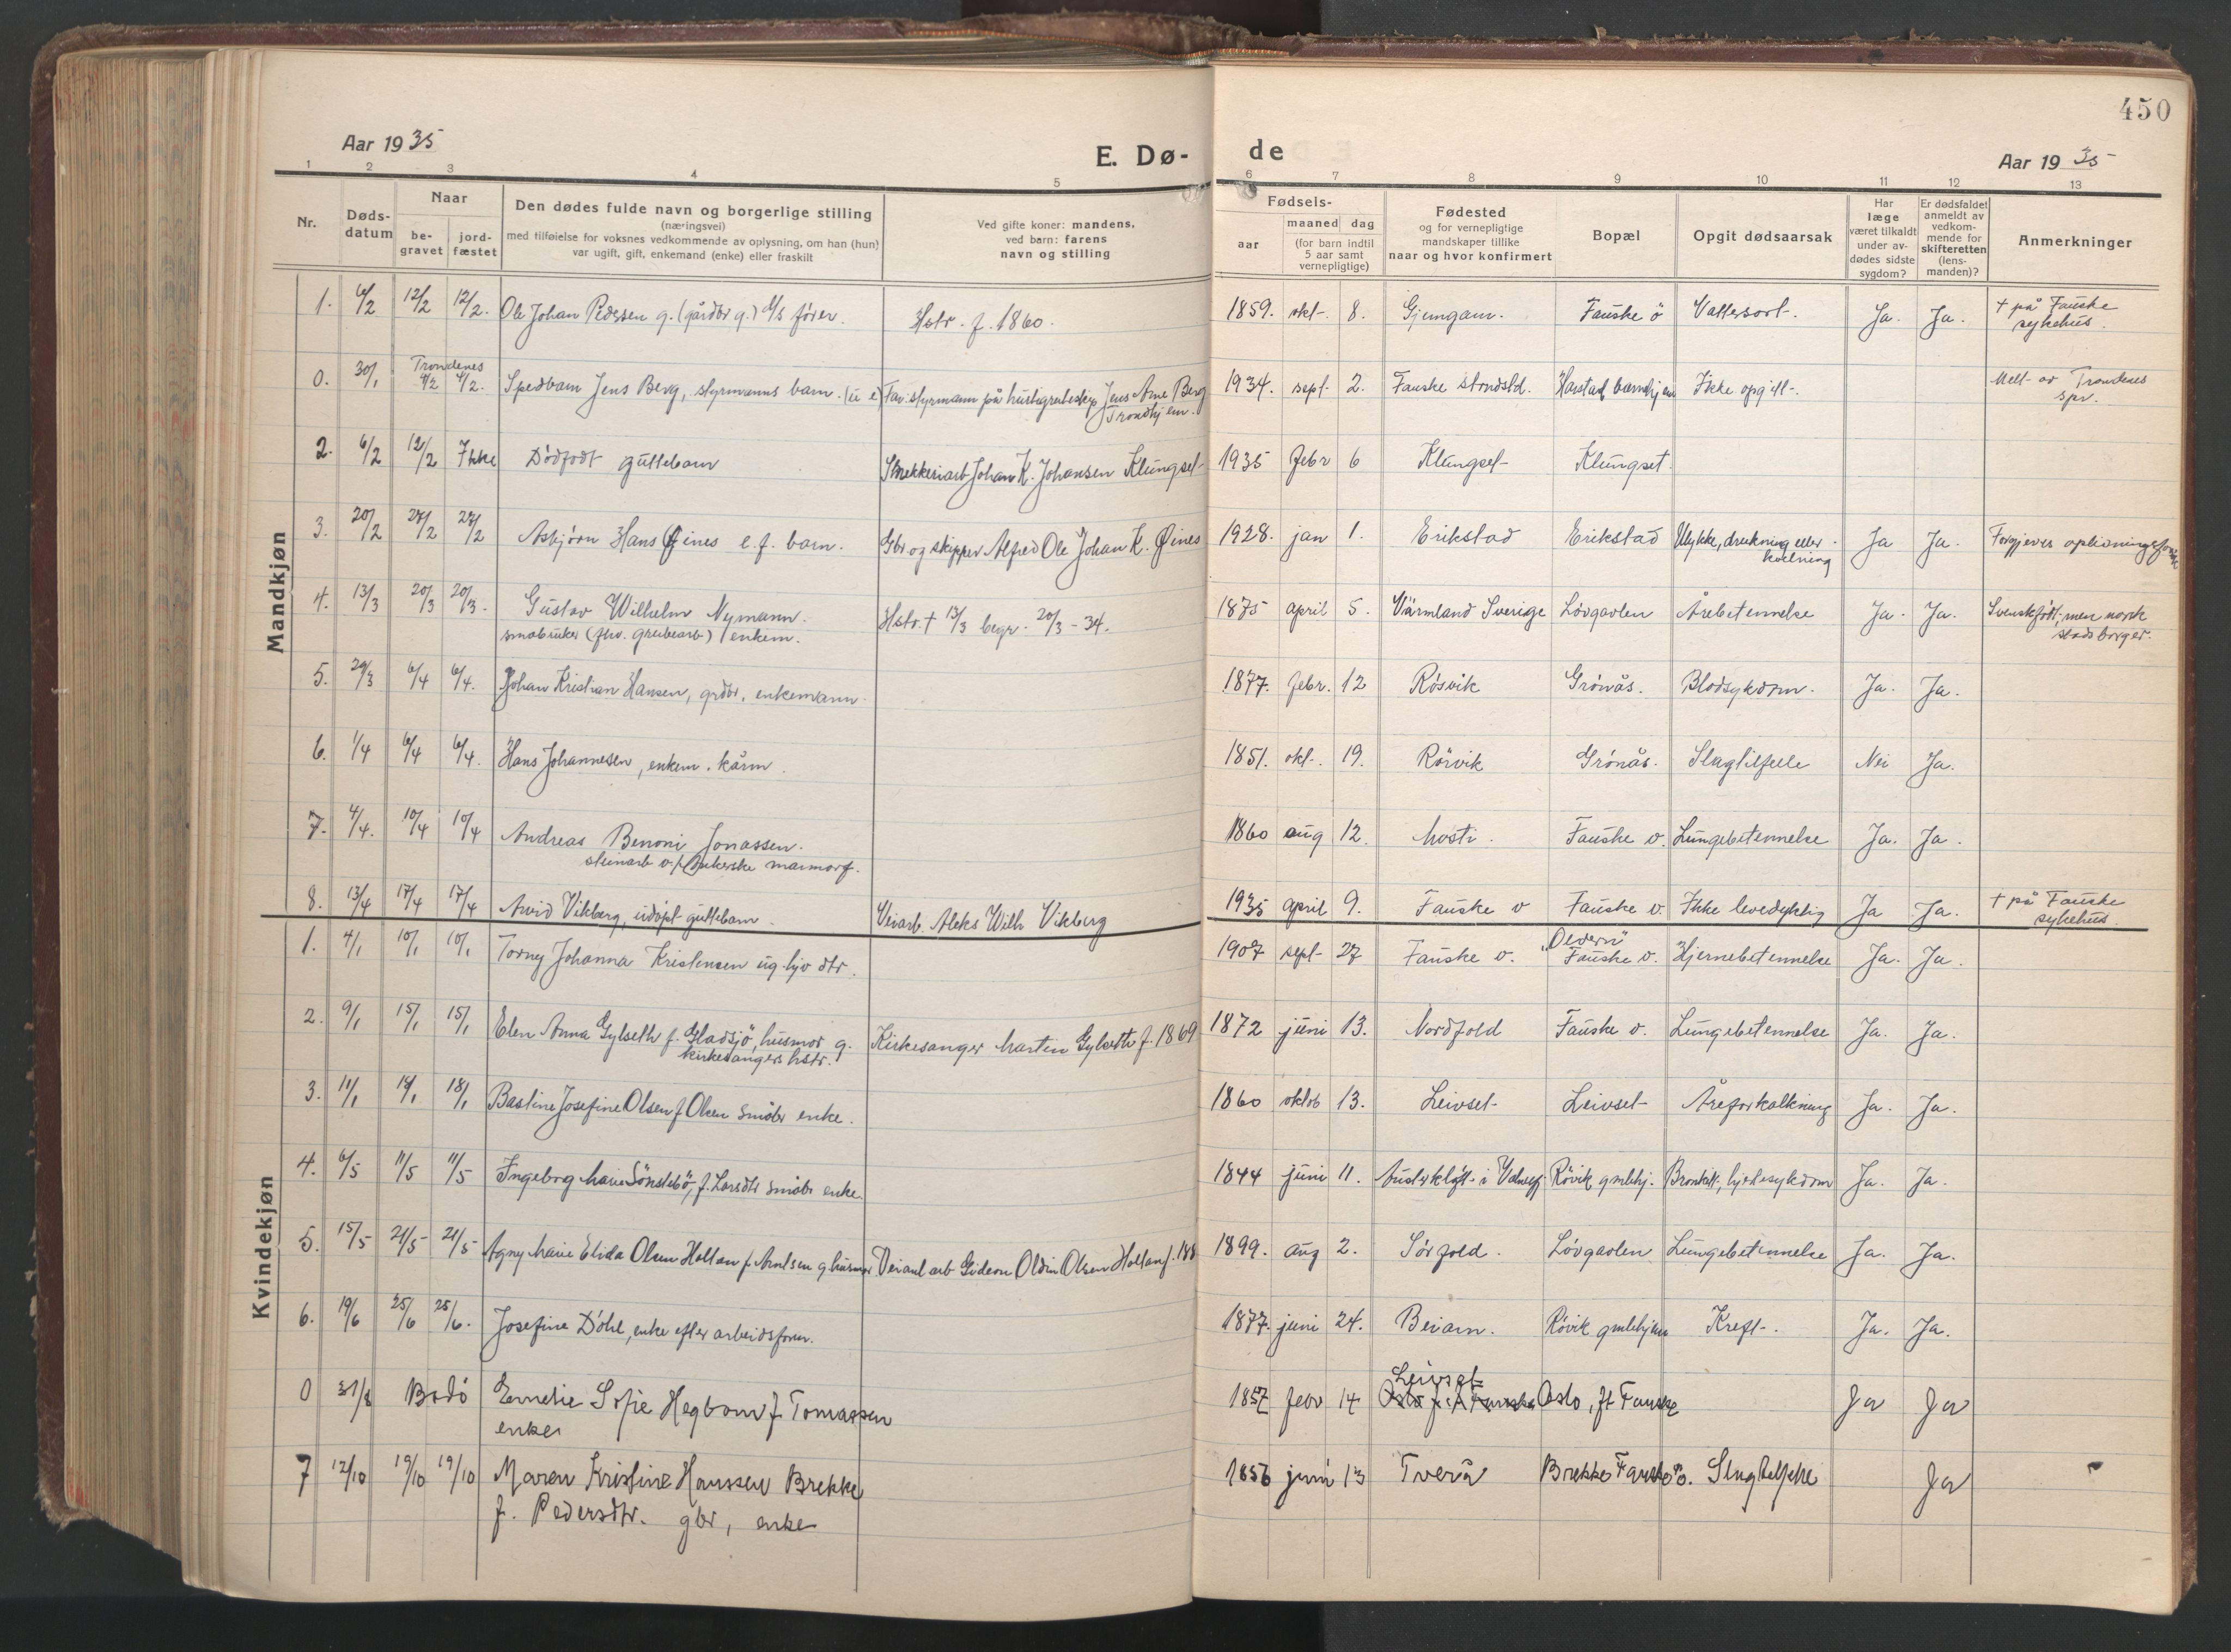 450
Aar 1935
E. Dø-
de
Aar 1935
1 2 3 4 5 6 7 8 9 10 11 12 13
Nr.
Døds-
datum
Naar
be-
gravet
jord-
fæstet
Den dødes fulde navn og borgerlige stilling
(næringsvei)
med tilføielse for voksnes vedkommende av oplysning, om han (hun)
var ugift, gift, enkemand (enke) eller fraskilt
Ved gifte koner: mandens,
ved barn: farens
navn og stilling
Fødsels-
aar
maaned dag
(for barn indtil
5 aar samt
vernepligtige)
Fødested
og for vernepligtige
mandskaper tillike
naar og hvor konfirmert
Bopæl
Opgit dødsaarsak
Har
læge
været tilkaldt
under av-
dødes sidste
sygdom?
Er dødsfaldet
anmeldt av
vedkom-
mende for
skifteretten
(lens-
manden)?
Anmerkninger
Mandkjøn
1. 6/2 12/2 12/2. Ole Johan Pedersen g. (gårdbr g.) fører. Hstr. f. 1860. 1859. okt. 8. Gjemgam. Fauske ö Vattersott. Ja. Ja. † på Fauske
sykehus.
Trondenes
0. 30/1 4/2 4/2. Spedbarn Jens Berg, styrmanns barn. (u e) Far: styrmann på hurtigruteskip Jens Arne Berg
Trondhjem. 1934. sept. 2. Fauske Harstad barnehjem Ikke opgitt. Melt av Trondenes
spr.
2. 6/2 12/2 Ikke Dödfödt guttebarn Snekkeriarb Johan K. Johansen Klungset 1935 febr 6 Klungset Klungset.
3. 20/2 27/2 27/2 Asbjørn Hans Øines e.f. barn. Gbr og skipper Alfred Ole Johan K. Øines 1928. jan 1. Erikstad Erikstad Ulykke, drukning eller
kvelning Ja Ja. Forgjeves
4. 13/3 20/3 20/3. Gustav Wilhelm Nymann.
småbruker (fhv. grubearb) enkem. Hstr. † 13/3 begr. 20/3 - 34. 1875 april 5. Värmland Sverige Lövgavlen Årebetennelse Ja. Ja. Svenskfödt, men norsk
statsborger.
5. 29/3 6/4 6/4. Johan Kristian Hansen, grdbr, enkemann. 1877. febr. 12 Rösvik Grönås. Blodsykdom. Ja. Ja.
6. 1/4 6/4 6/4. Hans Johannesen, enkem. kårm. 1851. okt. 19. Rörvik Grönås. Slagtilfelle Nei Ja.
7. 4/4. 10/4 10/4 Andreas Benoni Jonassen.
steinarb v. Ankerske marmorf. 1860 aug 12. Mosti. Fauske v. Lungebetennelse Ja. Ja.
8. 13/4 17/4 17/4 Arvid Vikberg, udöpt guttebarn. Veiarb. Aleks Wilh Vikberg 1935 april 9. Fauske v Fauske v. Ikke levedyktig Ja Ja. † på Fauske
sykehus.
Kvindekjøn
1. 4/1 10/1 10/1 Torney Johanna Kristensen ug. hjv dtr. 1907 sept 27 Fauske v. "Oldern"
Fauske v. Hjernebetennelse Ja. Ja.
2. 9/1 15/1 15/1 Elen Anna Gylseth f. Gladsjö, husmor g.
kirkesangers hstr. Kirkesanger Martin Gylseth f. 1869 1872 juni 13. Nordfold Fauske v. Lungebetennelse Ja. Ja.
3. 11/1 18/1 18/1 Bastine Josefine Olsen f Olsen småbr enke. 1860 oktob 13. Leivset Leivset Åreforkalkning Ja. Ja.
4. 6/5 11/5 11/5 Ingeborg Marie Sönstebö, f. Larsdtr småbr enke 1844 juni 11. Rövik gmlehj. Bronkitt, hjertesykdom Ja. Ja.
5. 15/5 21/5 21/5 Agny Marie Elida Olsen Hollan f. Arntsen g husmor Veianl arb Gideon Oldin Olsen Hollan f. 188 1899. aug 2. Sörfold. Lövgavlen Lungebetennelse Ja. Ja.
6. 19/6 25/6 25/6. Josefine Döhl, enke efter arbeidsform. 1877. juni 24. Beiarn. Rövik gmlehjem Kreft. Ja. Ja.
0 31/8 Bodö Emelie Sofie Hegbom f Tomassen
enke 1857 febr 14 Leivset Oslo, ft Fauske Ja Ja
7 12/10 19/10 19/10 Maren Kristine Hanssen Brekke
f. Pedersdtr. gbr, enke 1856 juni 13 Tverå Brekke Fauske ö. Slagtilfelle Ja